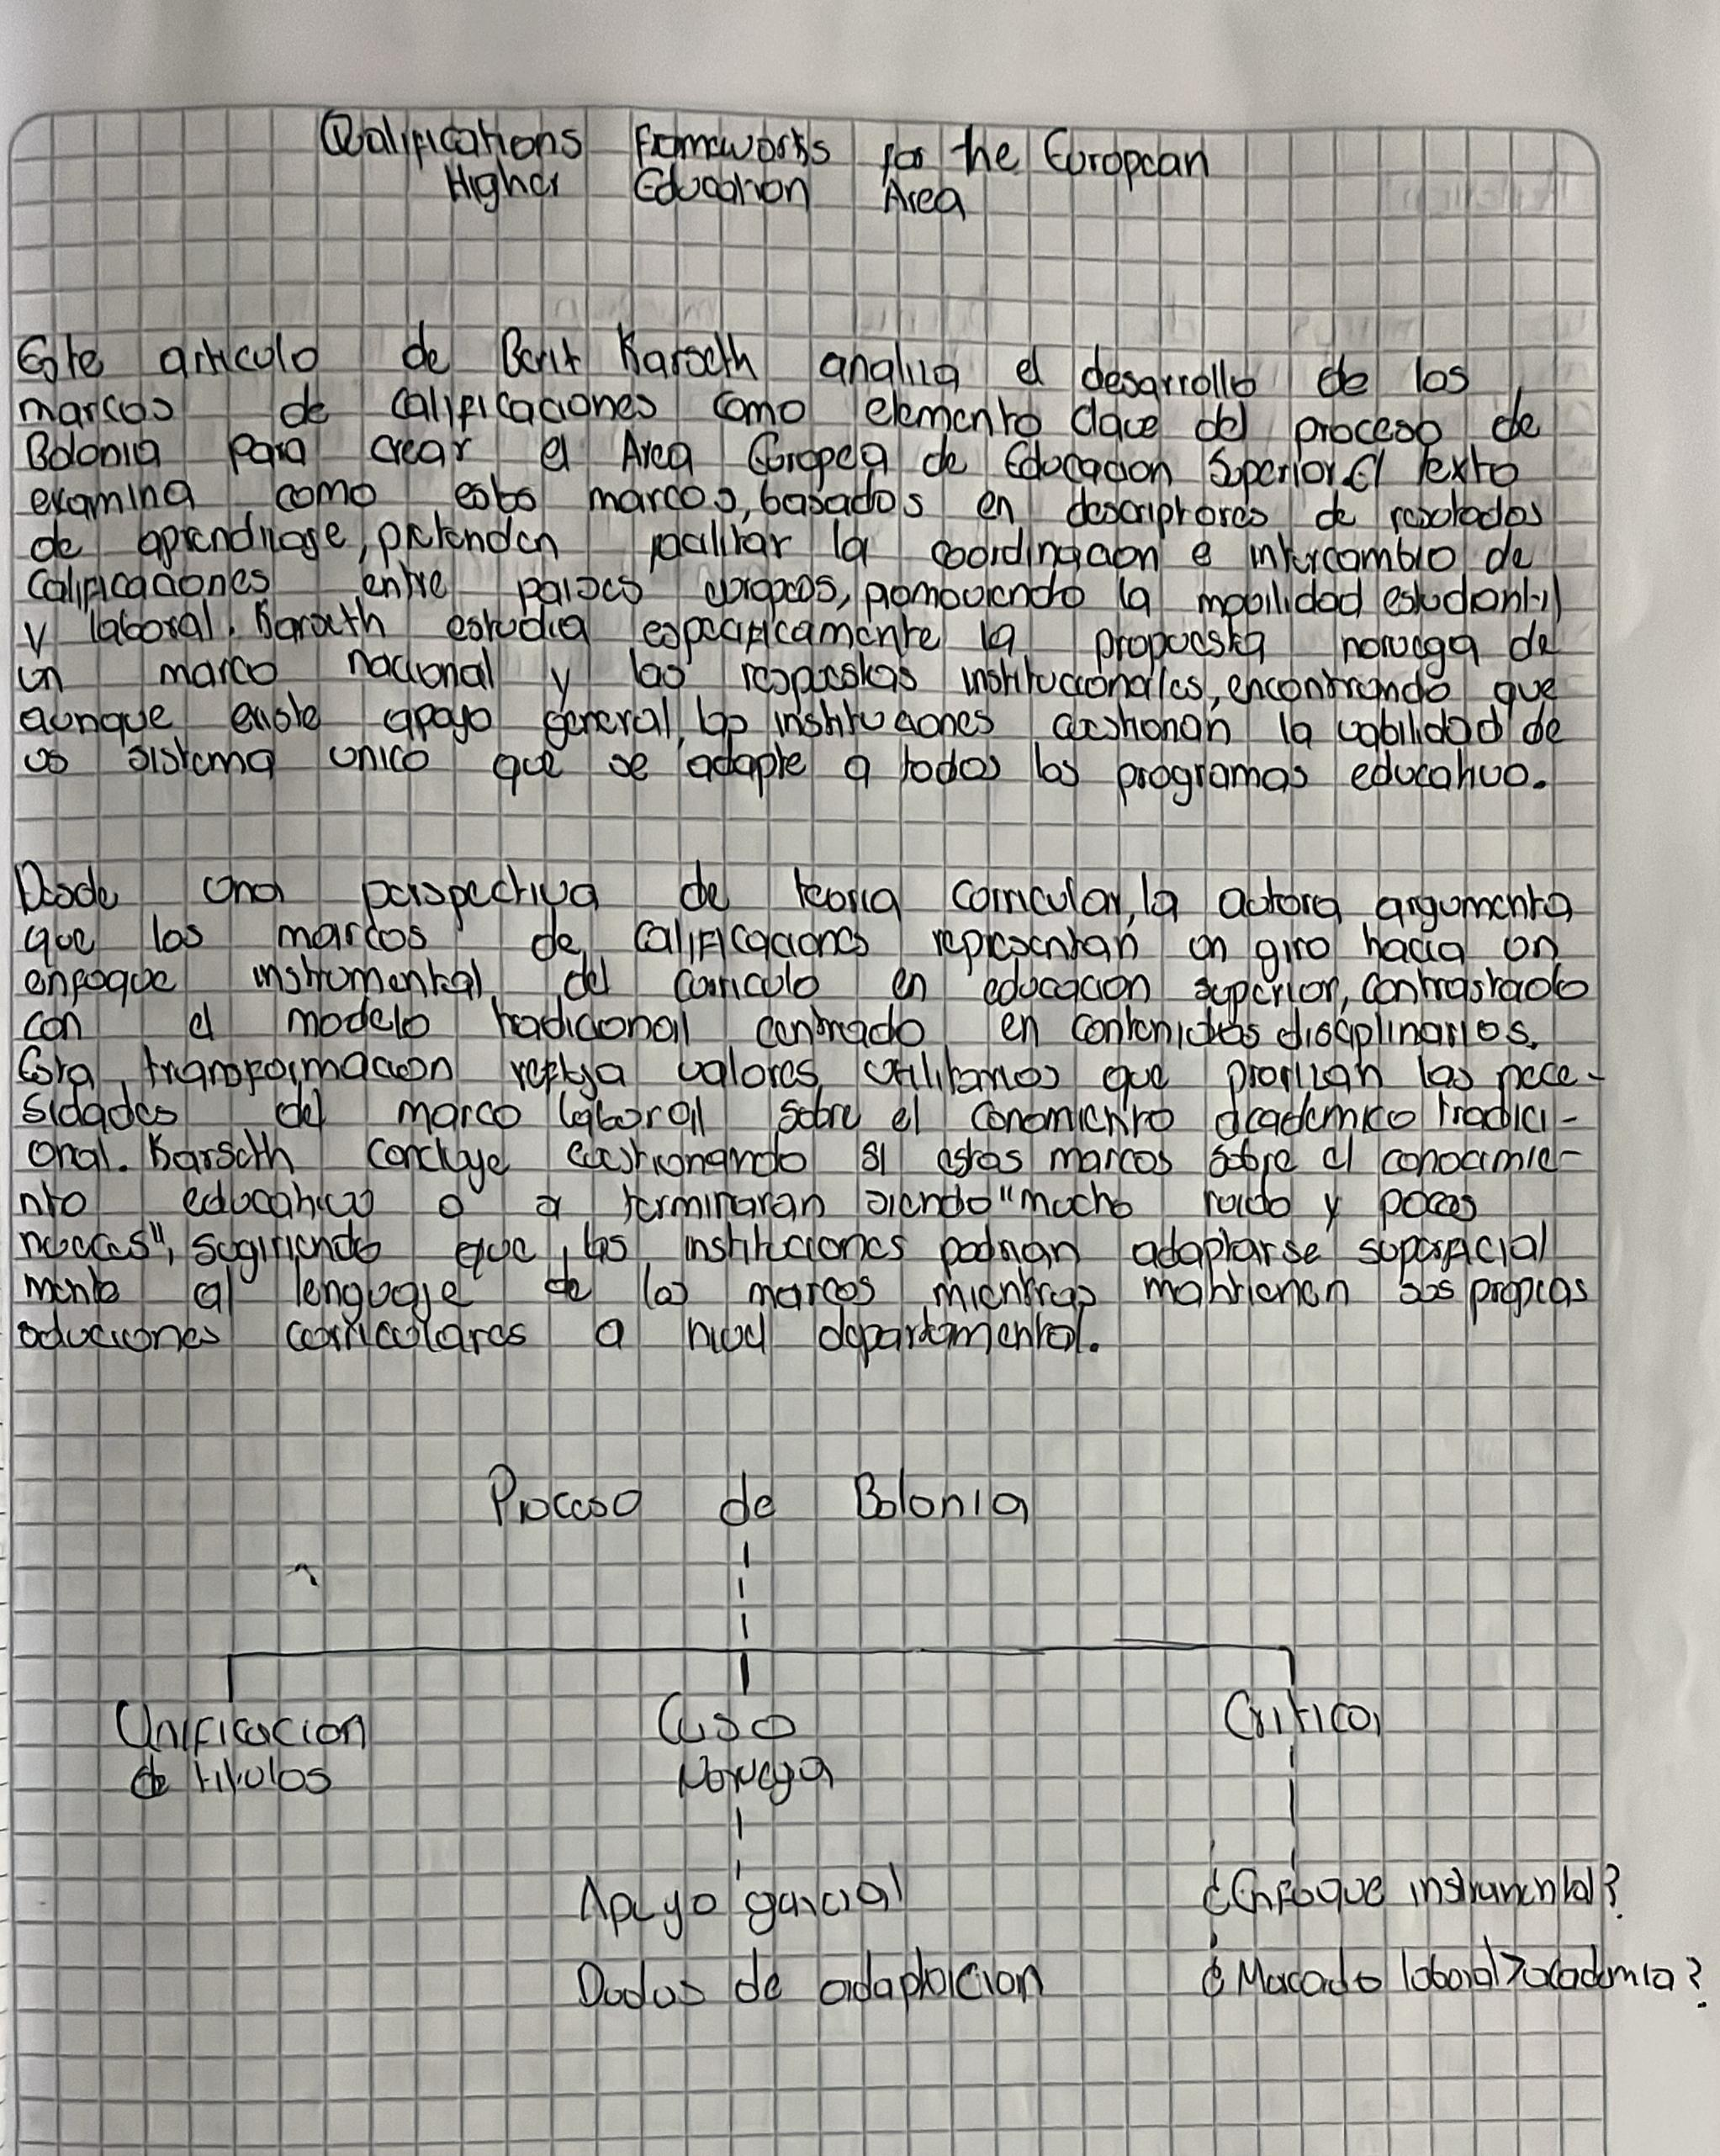 Qualifications Frameworks for the European
Higher Education Area
Este articulo de Berit Karseth analiza el desarrollo de los
marcos de calificaciones como elemento clave del proceso de
Bolonia para crear el Area Europea de Educacion Superior. El texto
examina como estos marcos, basados en descriptores de resultados
de aprendizage, pretenden facilitar la coordinacion e intercambio de
calificaciones entre paises europeos, promoviendo la mobilidad estudiantil
y laboral. Karseth estudia especificamente la propuesta noruega de
un marco nacional y las respuestas institucionales, encontrando que
aunque existe apoyo general, las instituciones cuestionan la viabilidad de
us sistema unico que se adapte a todos los programas educativo.
Desde una perspectiva de teoria curricular, la autora argumenta
que los marcos de calificaciones representan un giro hacia un
enfoque instrumental del curriculo en educacion superior, contrastado
con el modelo tradicional centrado en contenidos disciplinarios.
Esta transformacion refleja valores utilitarios que priorizan las nece-
sidades del marco laboral sobre el conomiento academico tradici-
onal. Karseth concluye cuestionando si estos marcos sobre el conocimie-
nto educativo o a terminaran siendo "mucho ruido y pocas
nueces", sugiriendo que las instituciones podrian adaptarse superficial
mente al lenguaje de los marcos mientras mantienen sus propias
soluciones curriculares a nivel departamental.
Proceso de Bolonia
Unificacion Caso Critica
de titulos Noruega
Apoyo general ¿Enfoque instrumental?
Dudas de adaptacion ¿Mercado laboral > academia?